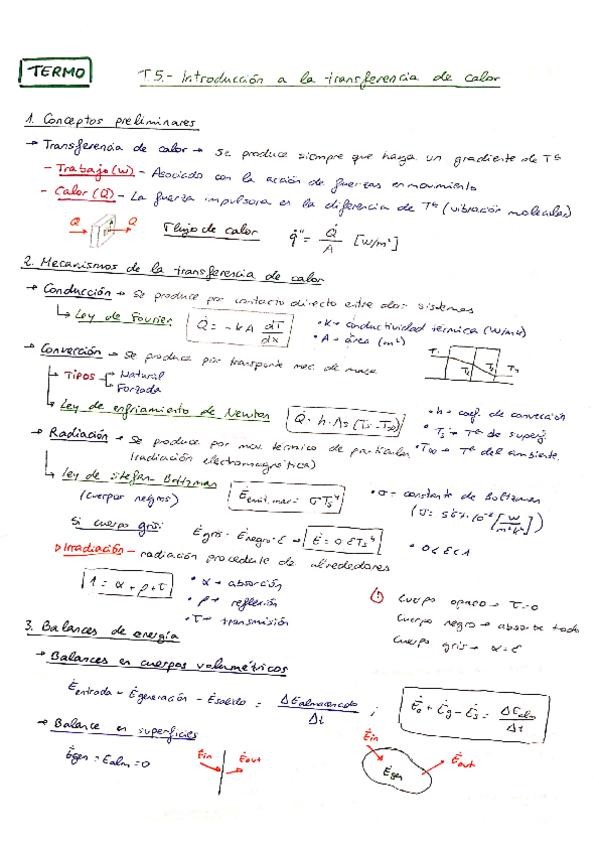 TERMO
T5.- Introducción a la transferencia de calor
1. Conceptos preliminares
→ Transferencia de calor → Se produce siempre que haya un gradiente de Tª
- Trabajo (W) - Asociado con la acción de fuerzas en movimiento
- Calor (Q) - La fuerza impulsora es la diferencia de Tª (vibración molecular)
Q̇ Q̇ Flujo de calor q̇" = Q̇ / A [W/m²]
2. Mecanismos de la transferencia de calor
→ Conducción → Se produce por contacto directo entre dos sistemas
↳ Ley de Fourier Q̇ = -kA dT/dx • K → conductividad térmica (W/mK)
• A → área (m²)
→ Convección → Se produce por transporte mac. de masa
↳ Tipos Natural
Forzada
↳ Ley de enfriamiento de Newton Q̇ = h·As (Ts - T∞) • h → coef. de convección
• Ts → Tª de superf.
→ Radiación → Se produce por mov. térmico de partículas • T∞ → Tª del ambiente
(radiación electromagnética)
↳ Ley de Stefan-Boltzman Ė emit. max = σTs⁴ • σ = constante de Boltzman
(cuerpos negros) (σ = 5'67·10⁻⁸ [W/m²K⁴])
Si cuerpo gris: Ė gris = Ė negro·ε → Ė = σεTs⁴ • 0<ε<1
▷ Irradiación - radiación procedente de alrededores
1 = α + ρ + τ • α → absorción
• ρ → reflexión
• τ → transmisión
! Cuerpo opaco → τ=0
Cuerpo negro → absorbe todo
Cuerpo gris → α=ε
3. Balances de energía
→ Balances en cuerpos volumétricos
Ė entrada + Ė generación - Ė salida = ΔE almacenada / Δt ; Ėe + Ėg - Ės = ΔE alm / Δt
→ Balance en superficies
Ė gen = E alm = 0 Ėin Ėout
Ėin Ėgen Ėout